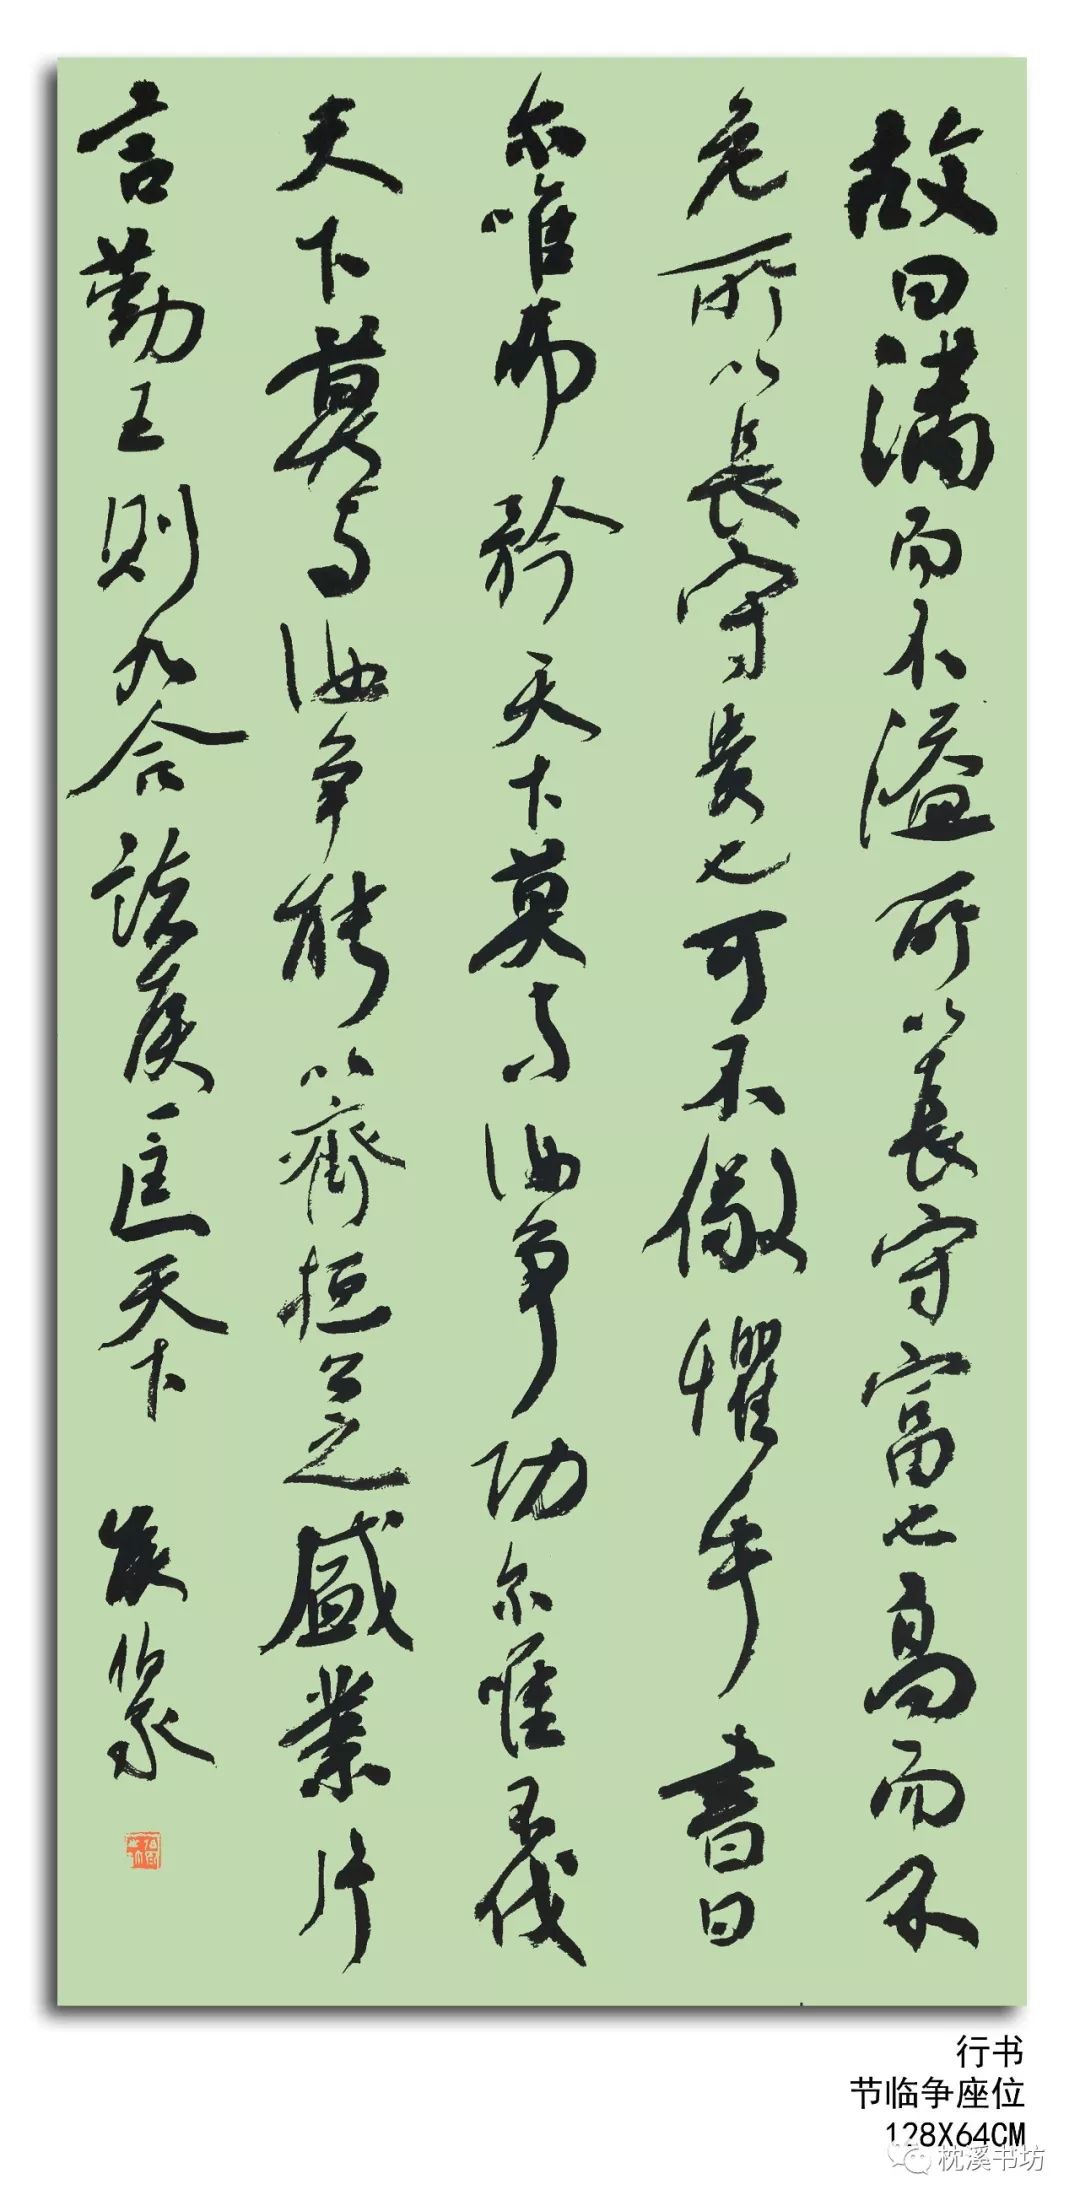 故曰滿而不溢所以長守富也高而不
危所以長守貴也可不儆懼乎書曰
尔唯弗矜天下莫与汝争功尔唯不伐
天下莫与汝争能以齊桓公之盛業片
言勤王則九合諸侯一匡天下
行书
节临争座位
128X64CM
枕溪书坊